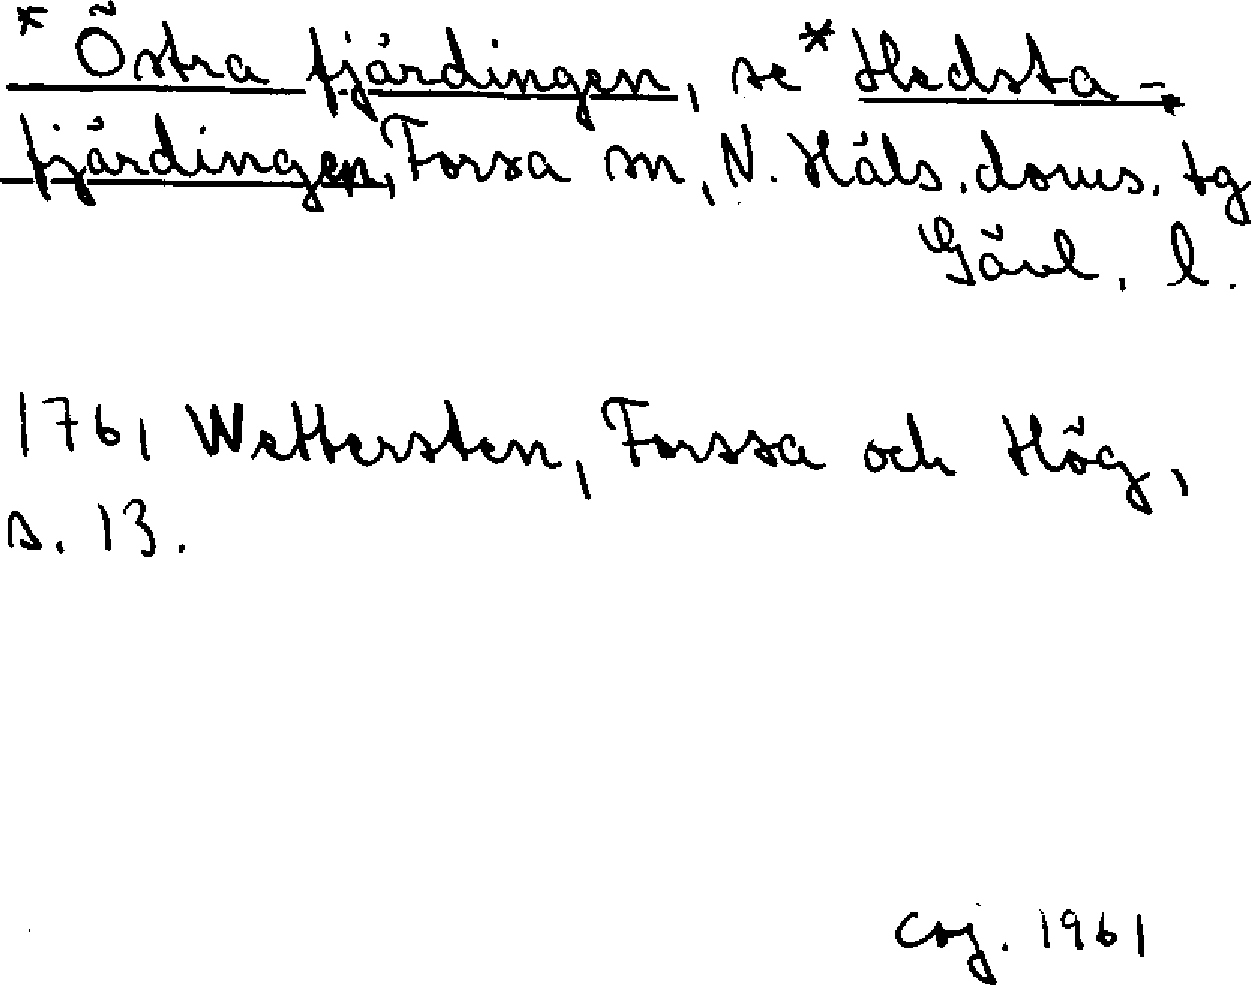 * Östra fjärdingen, se * Hedsta-
fjärdingen, Forsa sn, N. Häls. doms. tg
Gävl. l.
1761 Wettersten, Forssa och Hög,
s. 13.
coj. 1961